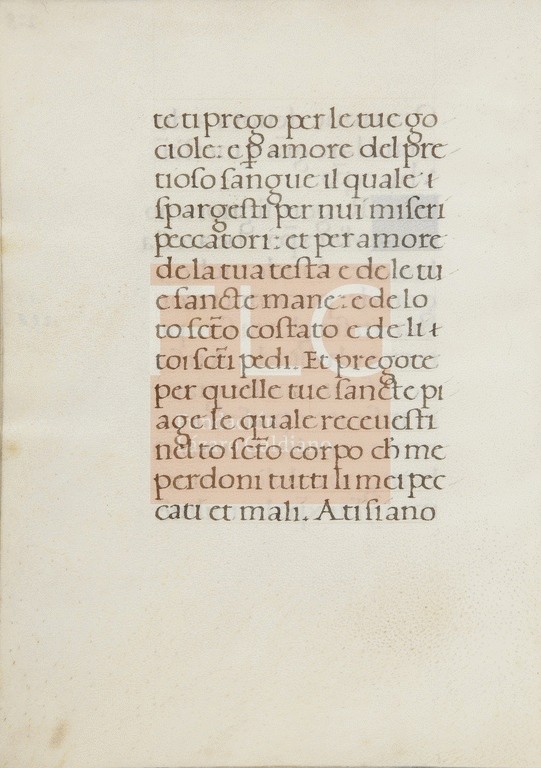 te ti prego per le tue go
ciole: e p̱ amore del pre
tioſo ſangue il quale ı
ſpargeſti per nui miſeri
peccatori: et per amore
de la tua teſta e de le tu
e ſancte mane: e de lo
to ſc̄to coſtato e de li t
toi ſc̄ti pedi. Et pregote
per quelle tue ſancte pi
age le quale receueſti
nel to ſc̄to corpo ch̄ me
perdoni tutti li mei pec
cati et mali. A ti ſiano
FLG